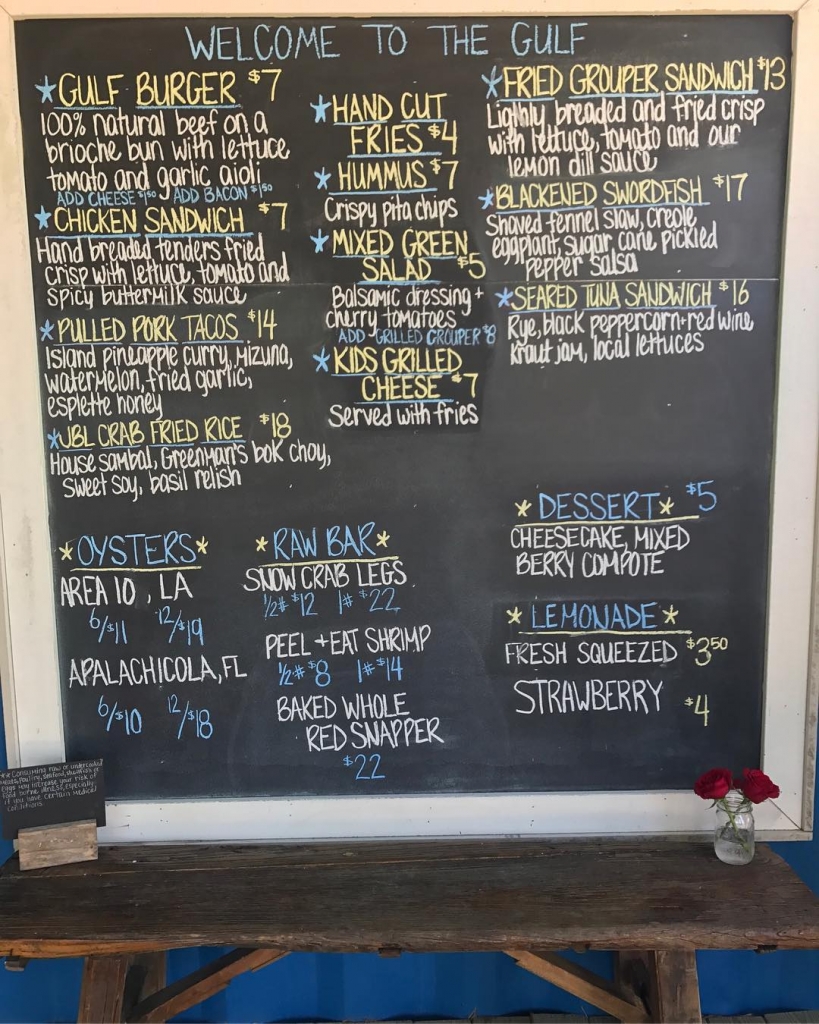 WELCOME TO THE GULF
★GULF BURGER $7
100% natural beef on a
brioche bun with lettuce
tomato and garlic aioli
ADD CHEESE $1.50 ADD BACON $1.50
★CHICKEN SANDWICH $7
Hand breaded tenders fried
crisp with lettuce, tomato and
spicy buttermilk sauce
★PULLED PORK TACOS $14
Island pineapple curry, mizuna,
watermelon, fried garlic,
esplette honey
★JBL CRAB FRIED RICE $18
House sambal, Greenman's bok choy,
sweet soy, basil relish
★HAND CUT
FRIES $4
★HUMMUS $7
Crispy pita chips
★MIXED GREEN
SALAD $5
Balsamic dressing +
cherry tomatoes
ADD GRILLED GROUPER $8
★KIDS GRILLED
CHEESE $7
Served with fries
★FRIED GROUPER SANDWICH $13
Lightly breaded and fried crisp
with lettuce, tomato and our
lemon dill sauce
★BLACKENED SWORDFISH $17
Shaved fennel slaw, creole
eggplant, sugar cane pickled
pepper salsa
★SEARED TUNA SANDWICH $16
Rye, black peppercorn+red wine
kraut jam, local lettuces
★OYSTERS★
AREA 10, LA
6/$11 12/$19
APALACHICOLA, FL
6/$10 12/$18
★RAW BAR★
SNOW CRAB LEGS
1/2# $12 1# $22
PEEL + EAT SHRIMP
1/2# $8 1# $14
BAKED WHOLE
RED SNAPPER
$22
★DESSERT★ $5
CHEESECAKE, MIXED
BERRY COMPOTE
★LEMONADE★
FRESH SQUEEZED $3.50
STRAWBERRY $4
**Consuming raw or undercooked
meats, poultry, seafood, shellfish or
eggs may increase your risk of
food borne illness, especially
if you have certain medical
conditions